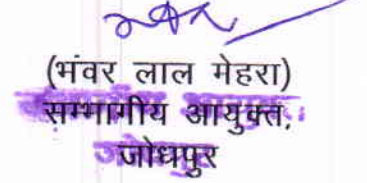 (भंवर लाल मेहरा)
सम्भागीय आयुक्त,
जोधपुर